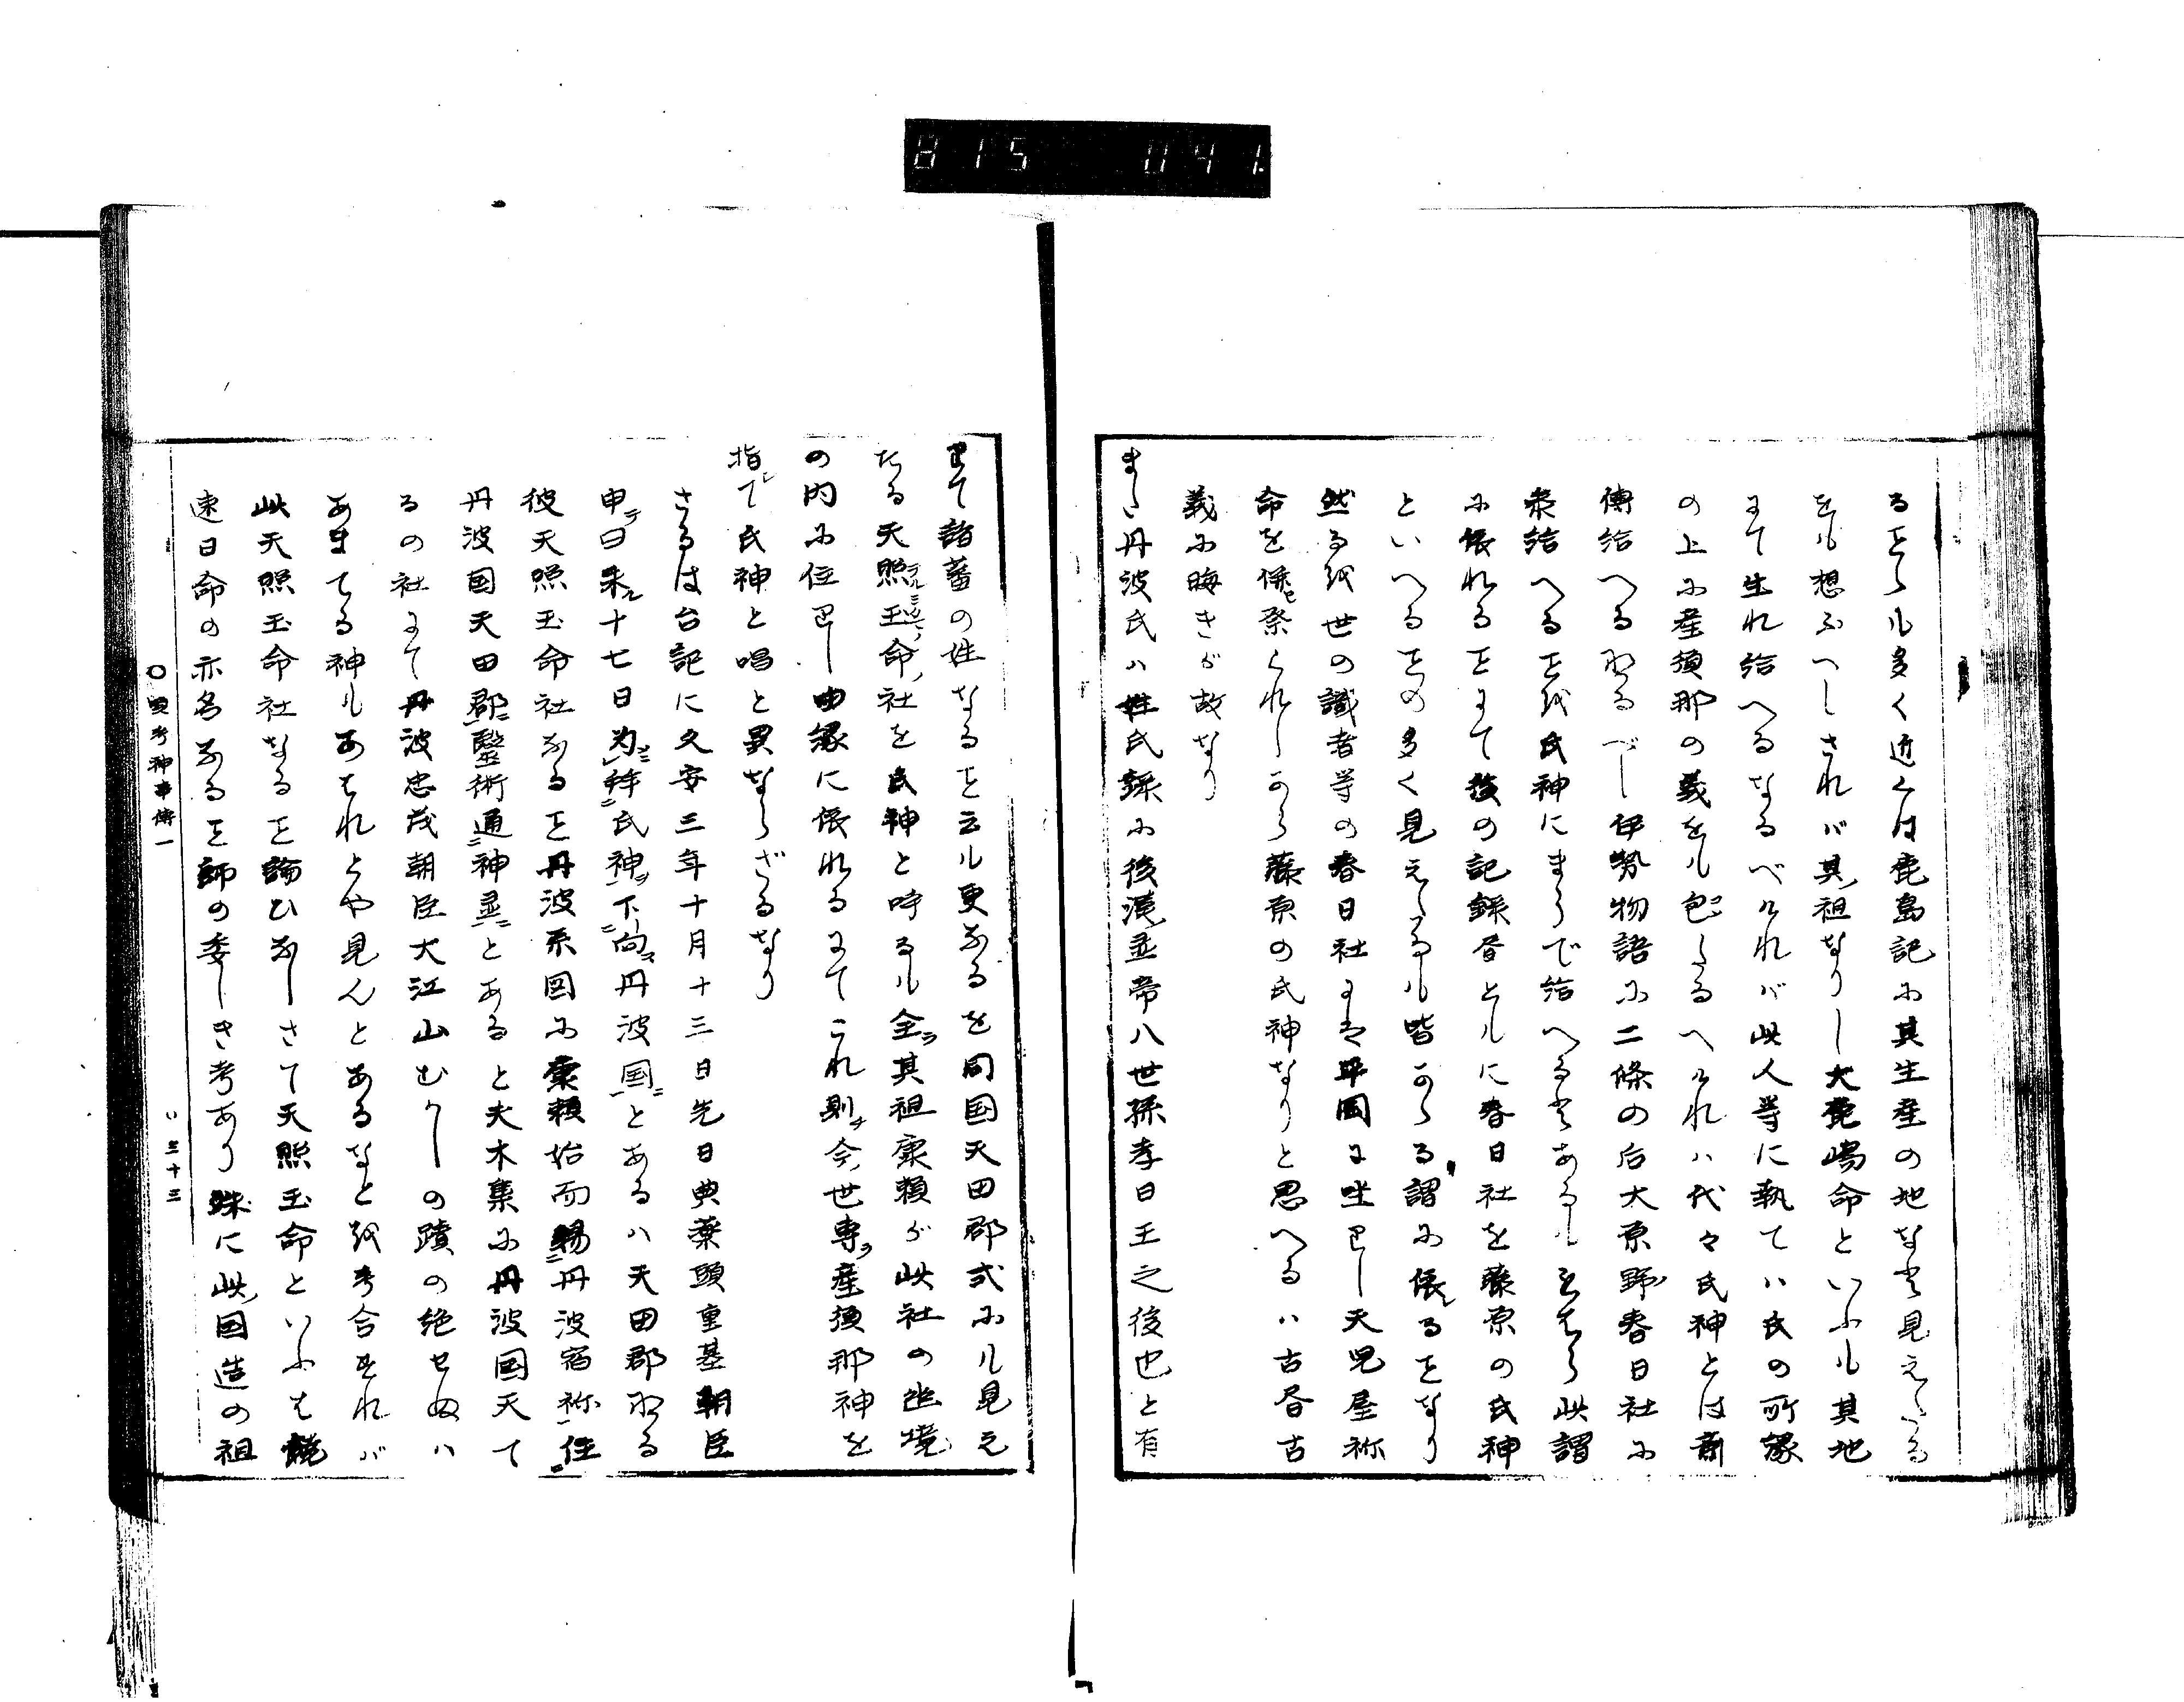 815 041
ることも多く近くは鹿島記に其生産の地など見えたる
をも想ふへしされバ其祖なりし大鹿嶋命といふも其地
にて生れ給へるなるべけれバ此人等に執てハ氏の所縁
の上に産須那の義をも包たるへけれハ代々氏神とは斎
傳給へるなるべし伊勢物語に二條の后大原野春日社に
参給へることを氏神にまうで給へるとあるも 此謂
に依れることにて後の記録書ともに春日社を藤原の氏神
といへることの多く見えたるも皆かゝる謂に依ることなり
然るを世の識者等の春日社には平岡に坐ましゝ天児屋祢
命を併せ祭られしから藤原の氏神なりと思へるハ古昔古
義に晦きが故なり
また丹波氏ハ姓氏録に後漢霊帝八世孫孝日王之後也と有
にて諸蕃の姓なること云も更なるを同国天田郡式にも見え
たる天照玉命ノ社を氏神と呼るも全ク其祖康頼が此社の近境
の内に住まし由縁に依れるにてこれ則チ今ノ世専ラ産須那神を
指シて氏神と唱と異ならざるなり
さるは台記に久安三年十月十三日先日典薬頭重基朝臣
申テ曰来ル十七日為ニ拝ニ氏神ヲ下ニ向ス丹波国ニとあるハ天田郡なる
彼天照玉命社なること丹波系図に康頼始而賜ニ丹波宿祢一住
丹波国天田郡ニ醫術通ニ神霊ニとあると夫木集に丹波国天て
るの社にて丹波忠茂朝臣大江山むかしの蹟の絶せぬハ
あまてる神もあはれとや見んとあるなとを考合すれバ
此天照玉命社なること論ひなしさて天照玉命といふは饒
速日命の亦名なること師の委しき考あり殊に此国造の祖
〇更考神事傳一
い三十三